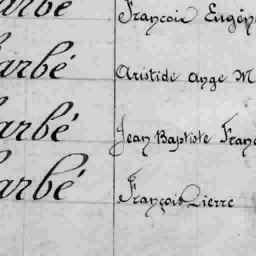 arbé François Eugèn
arbé Aristide Ange M
arbé Jean Baptiste Franç
arbé François Pierre